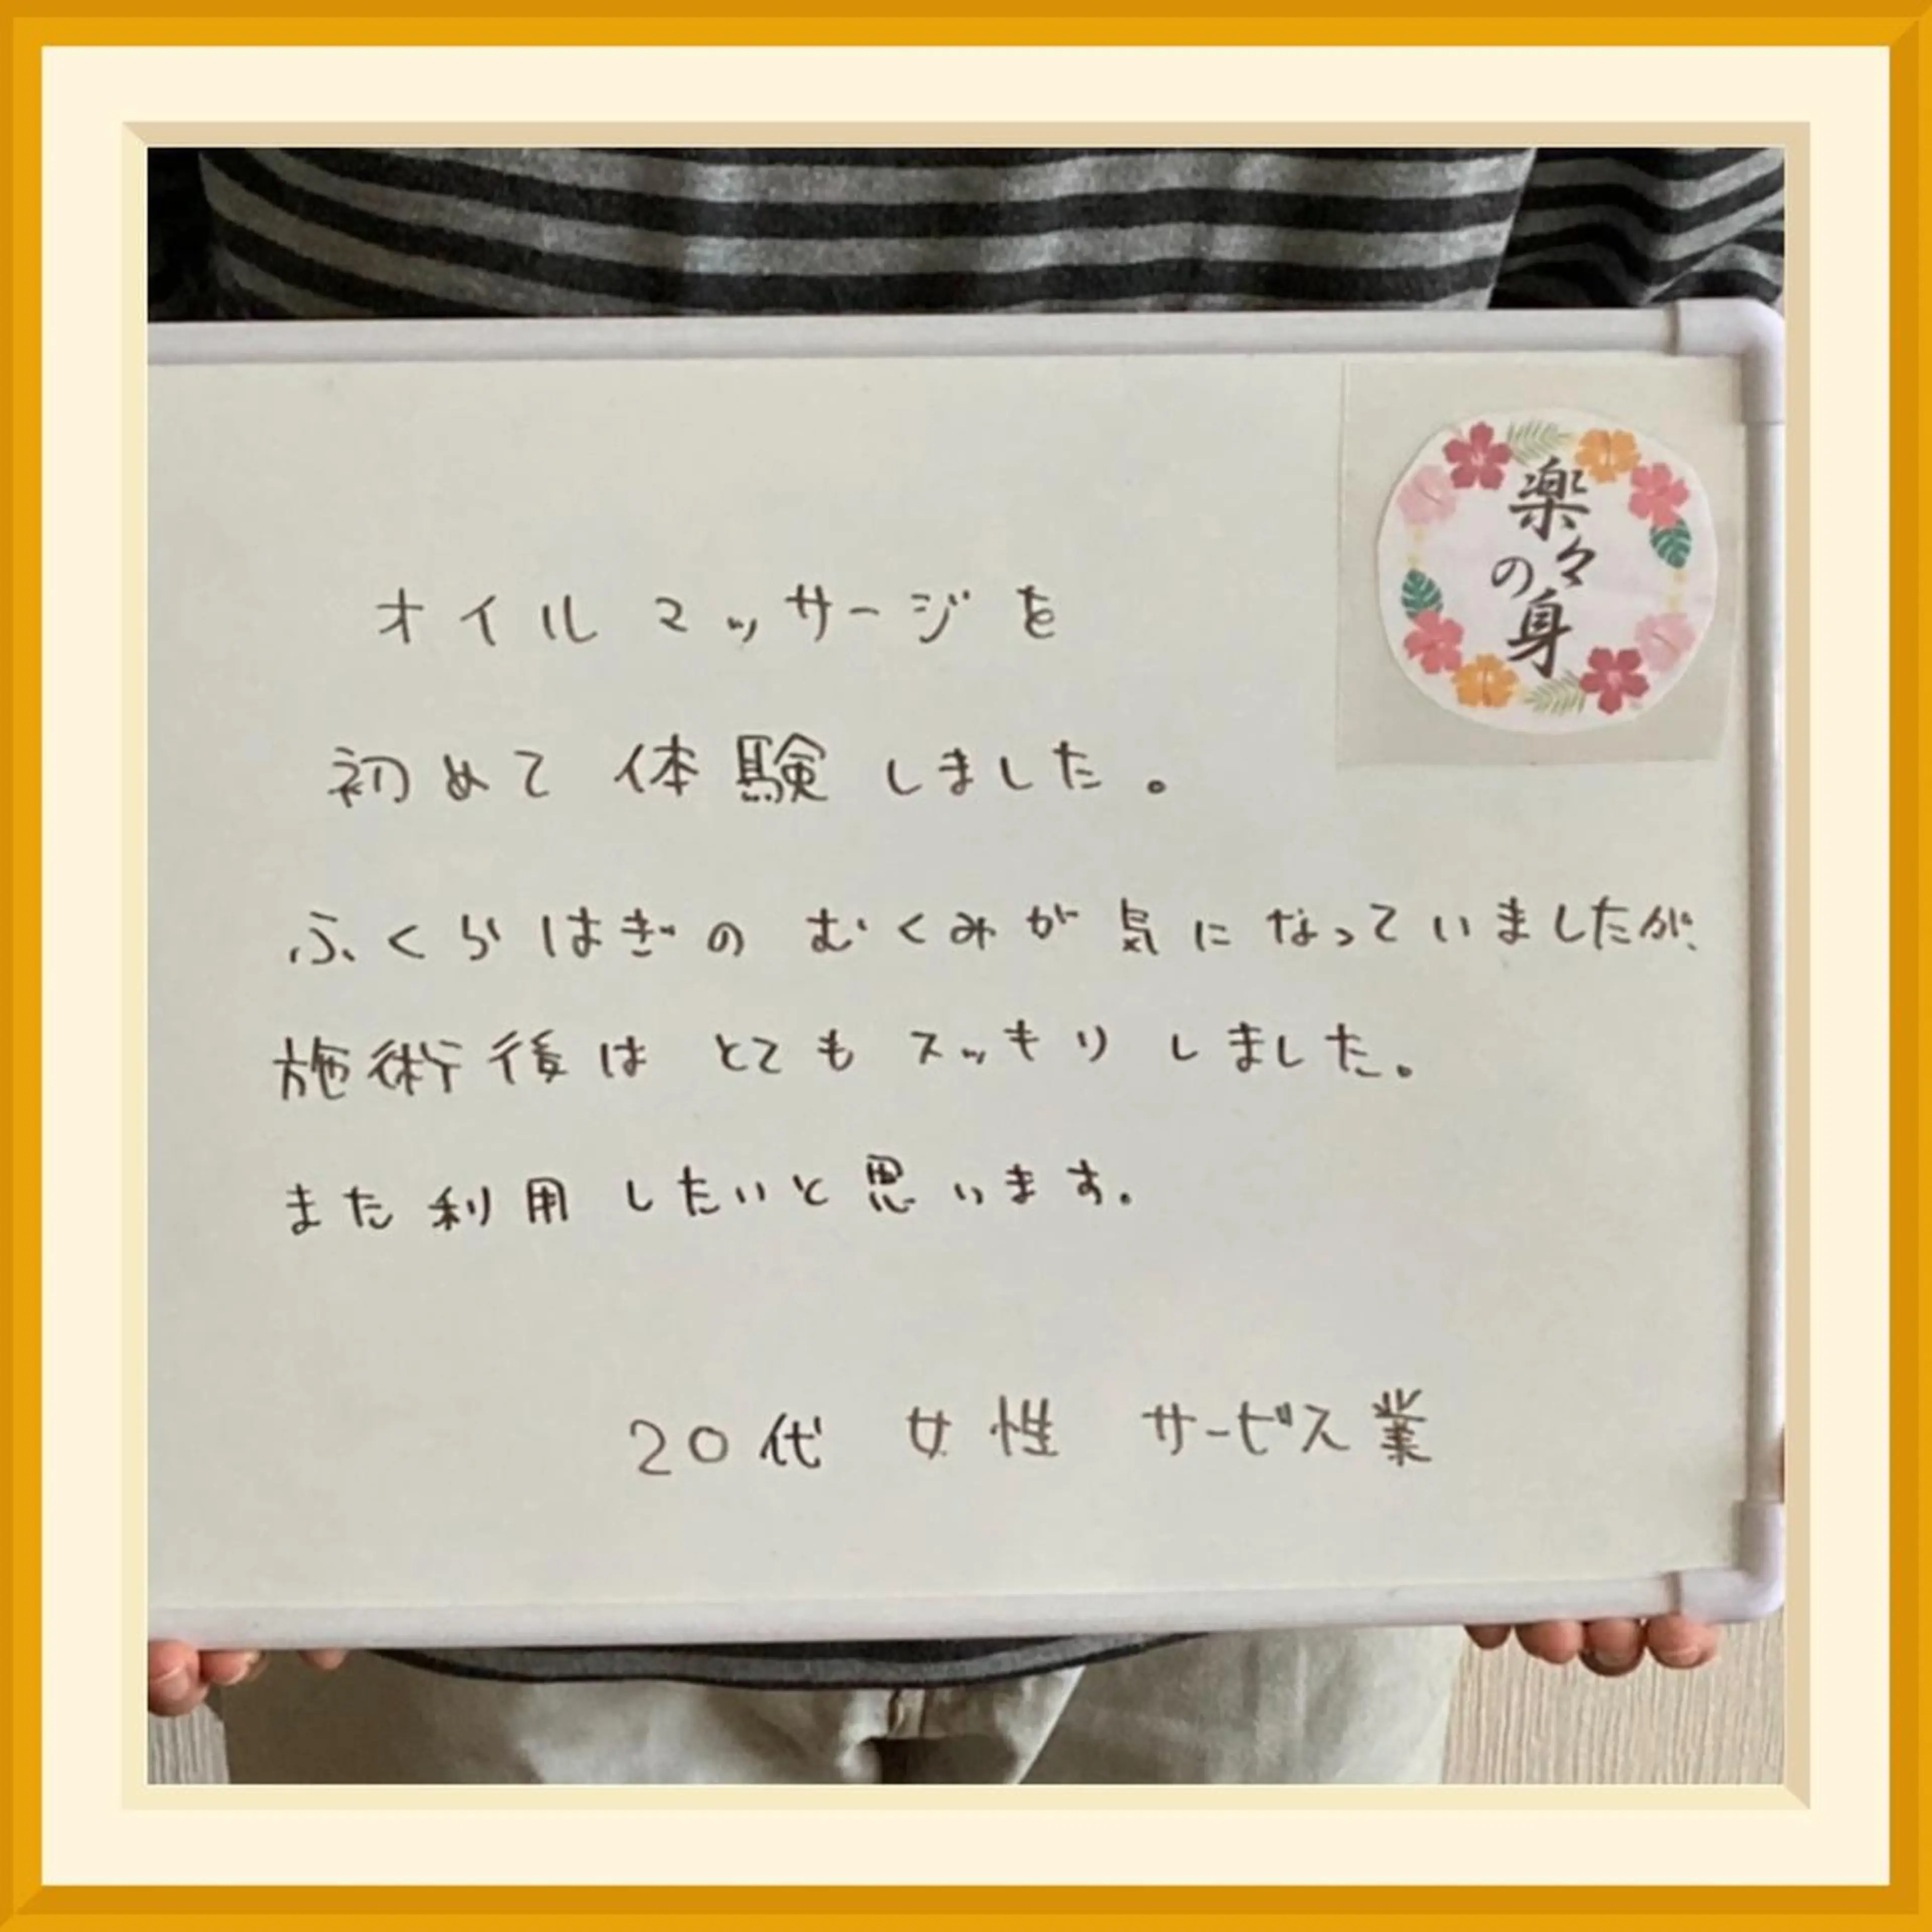 楽々の身
オイルマッサージを
初めて体験しました。
ふくらはぎのむくみが気になっていましたが、
施術後はとてもスッキリしました。
また利用したいと思います。
20代 女性 サービス業